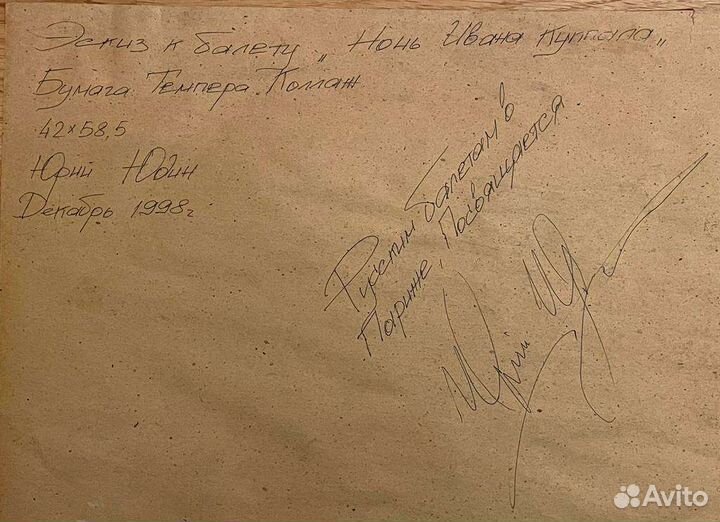 Эскиз к балету „Ночь Ивана Куппала„
Бумага. Темпера. Коллаж
42×58,5
Юрий Юдин
Декабрь 1998г
Русским балетам в
Париже, Посвящается
Avito